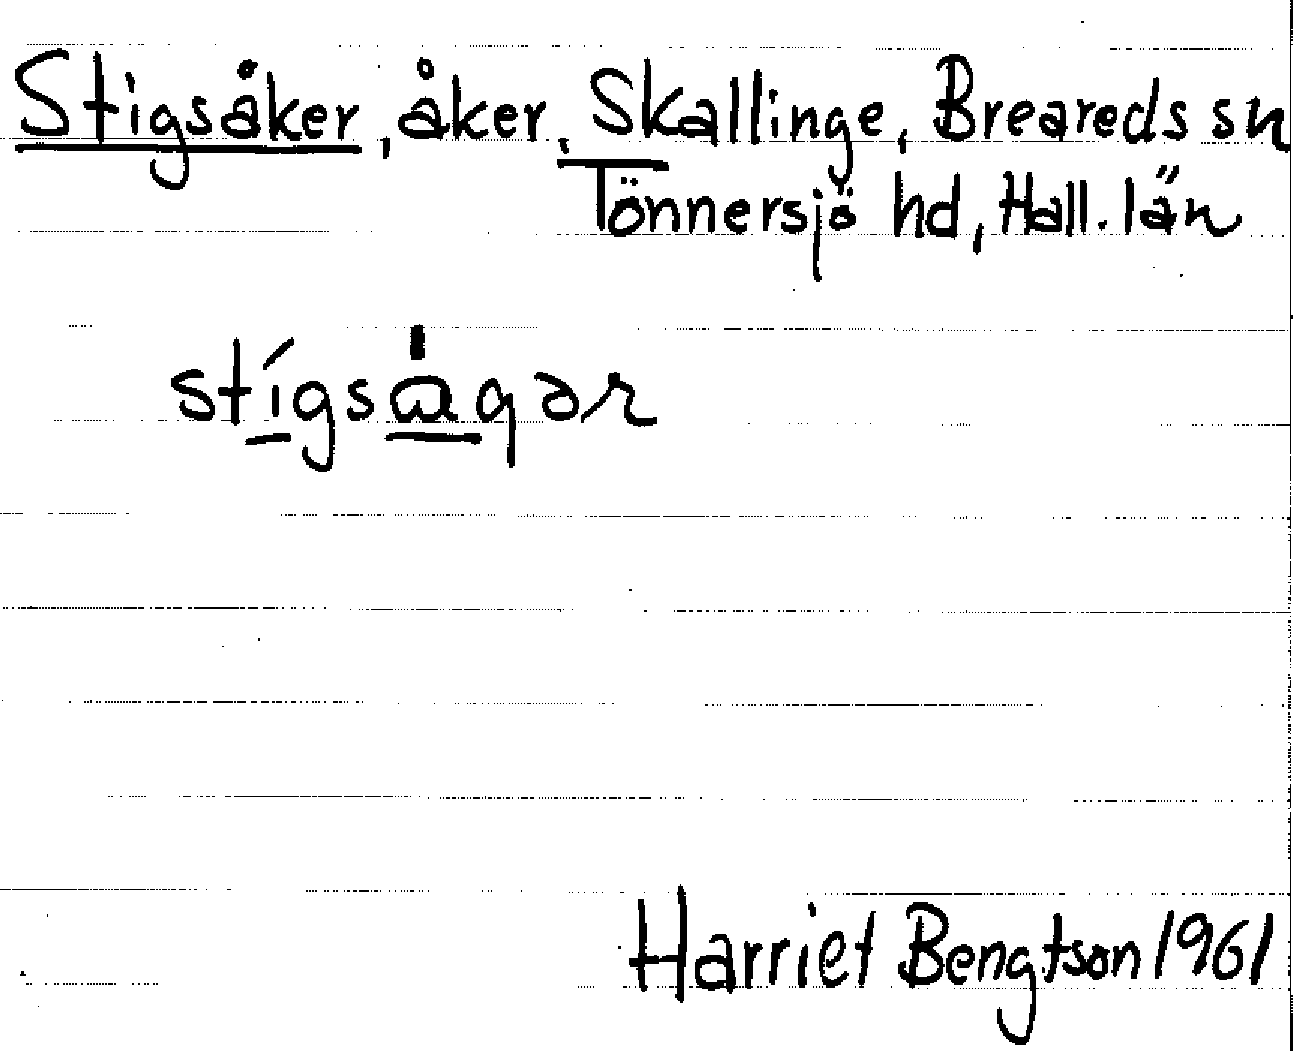 Stigsåker, åker, Skallinge, Breareds sn
Tönnersjö hd, Hall. län
stígsågər
Harriet Bengtson 1961